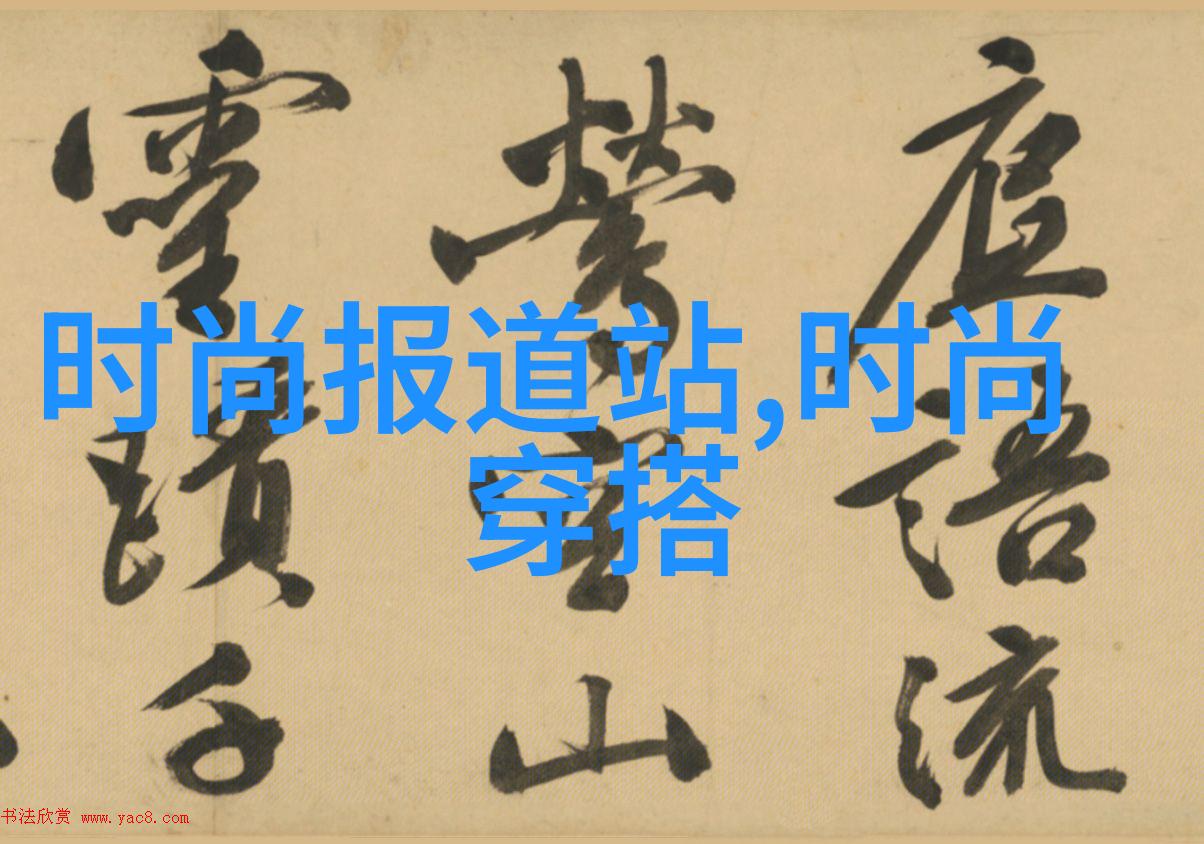 时尚报道站,时尚
穿搭
庭语流
营空山
灵迹千
书法欣赏 www.yac8.com